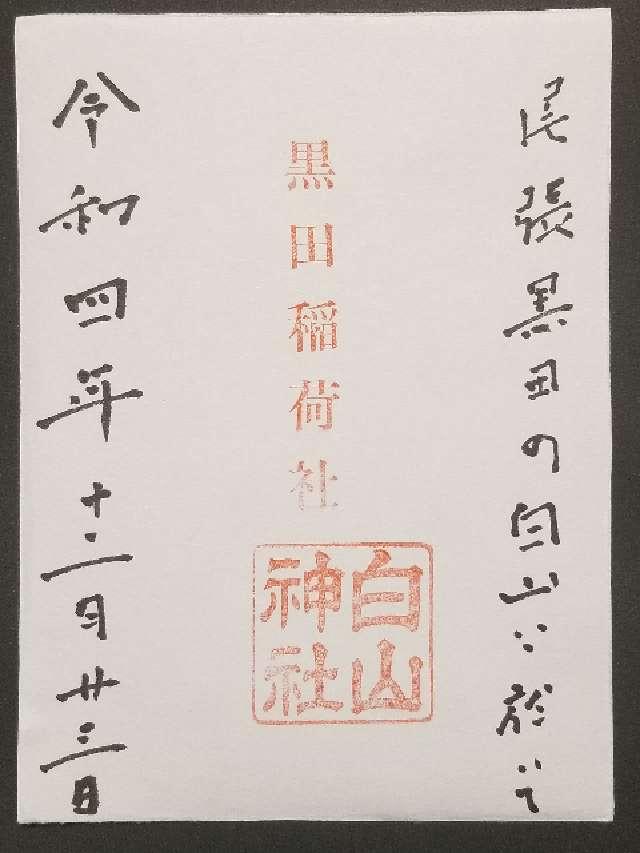 尾張黒田の白山に於いて
黒田稲荷社
白山
神社
令和四年十二月廿三日